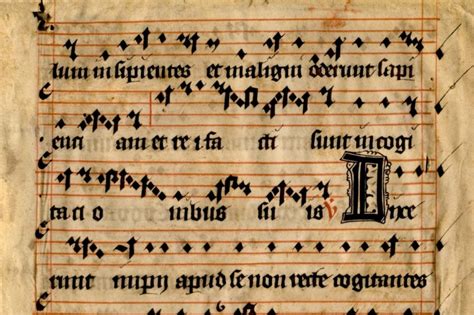 lium insipientes et maligni oderunt sapi
enci am et rei fa cti sunt in cogi
taci o nibus su is V Dixe
runt impii apud se non recte cogitantes